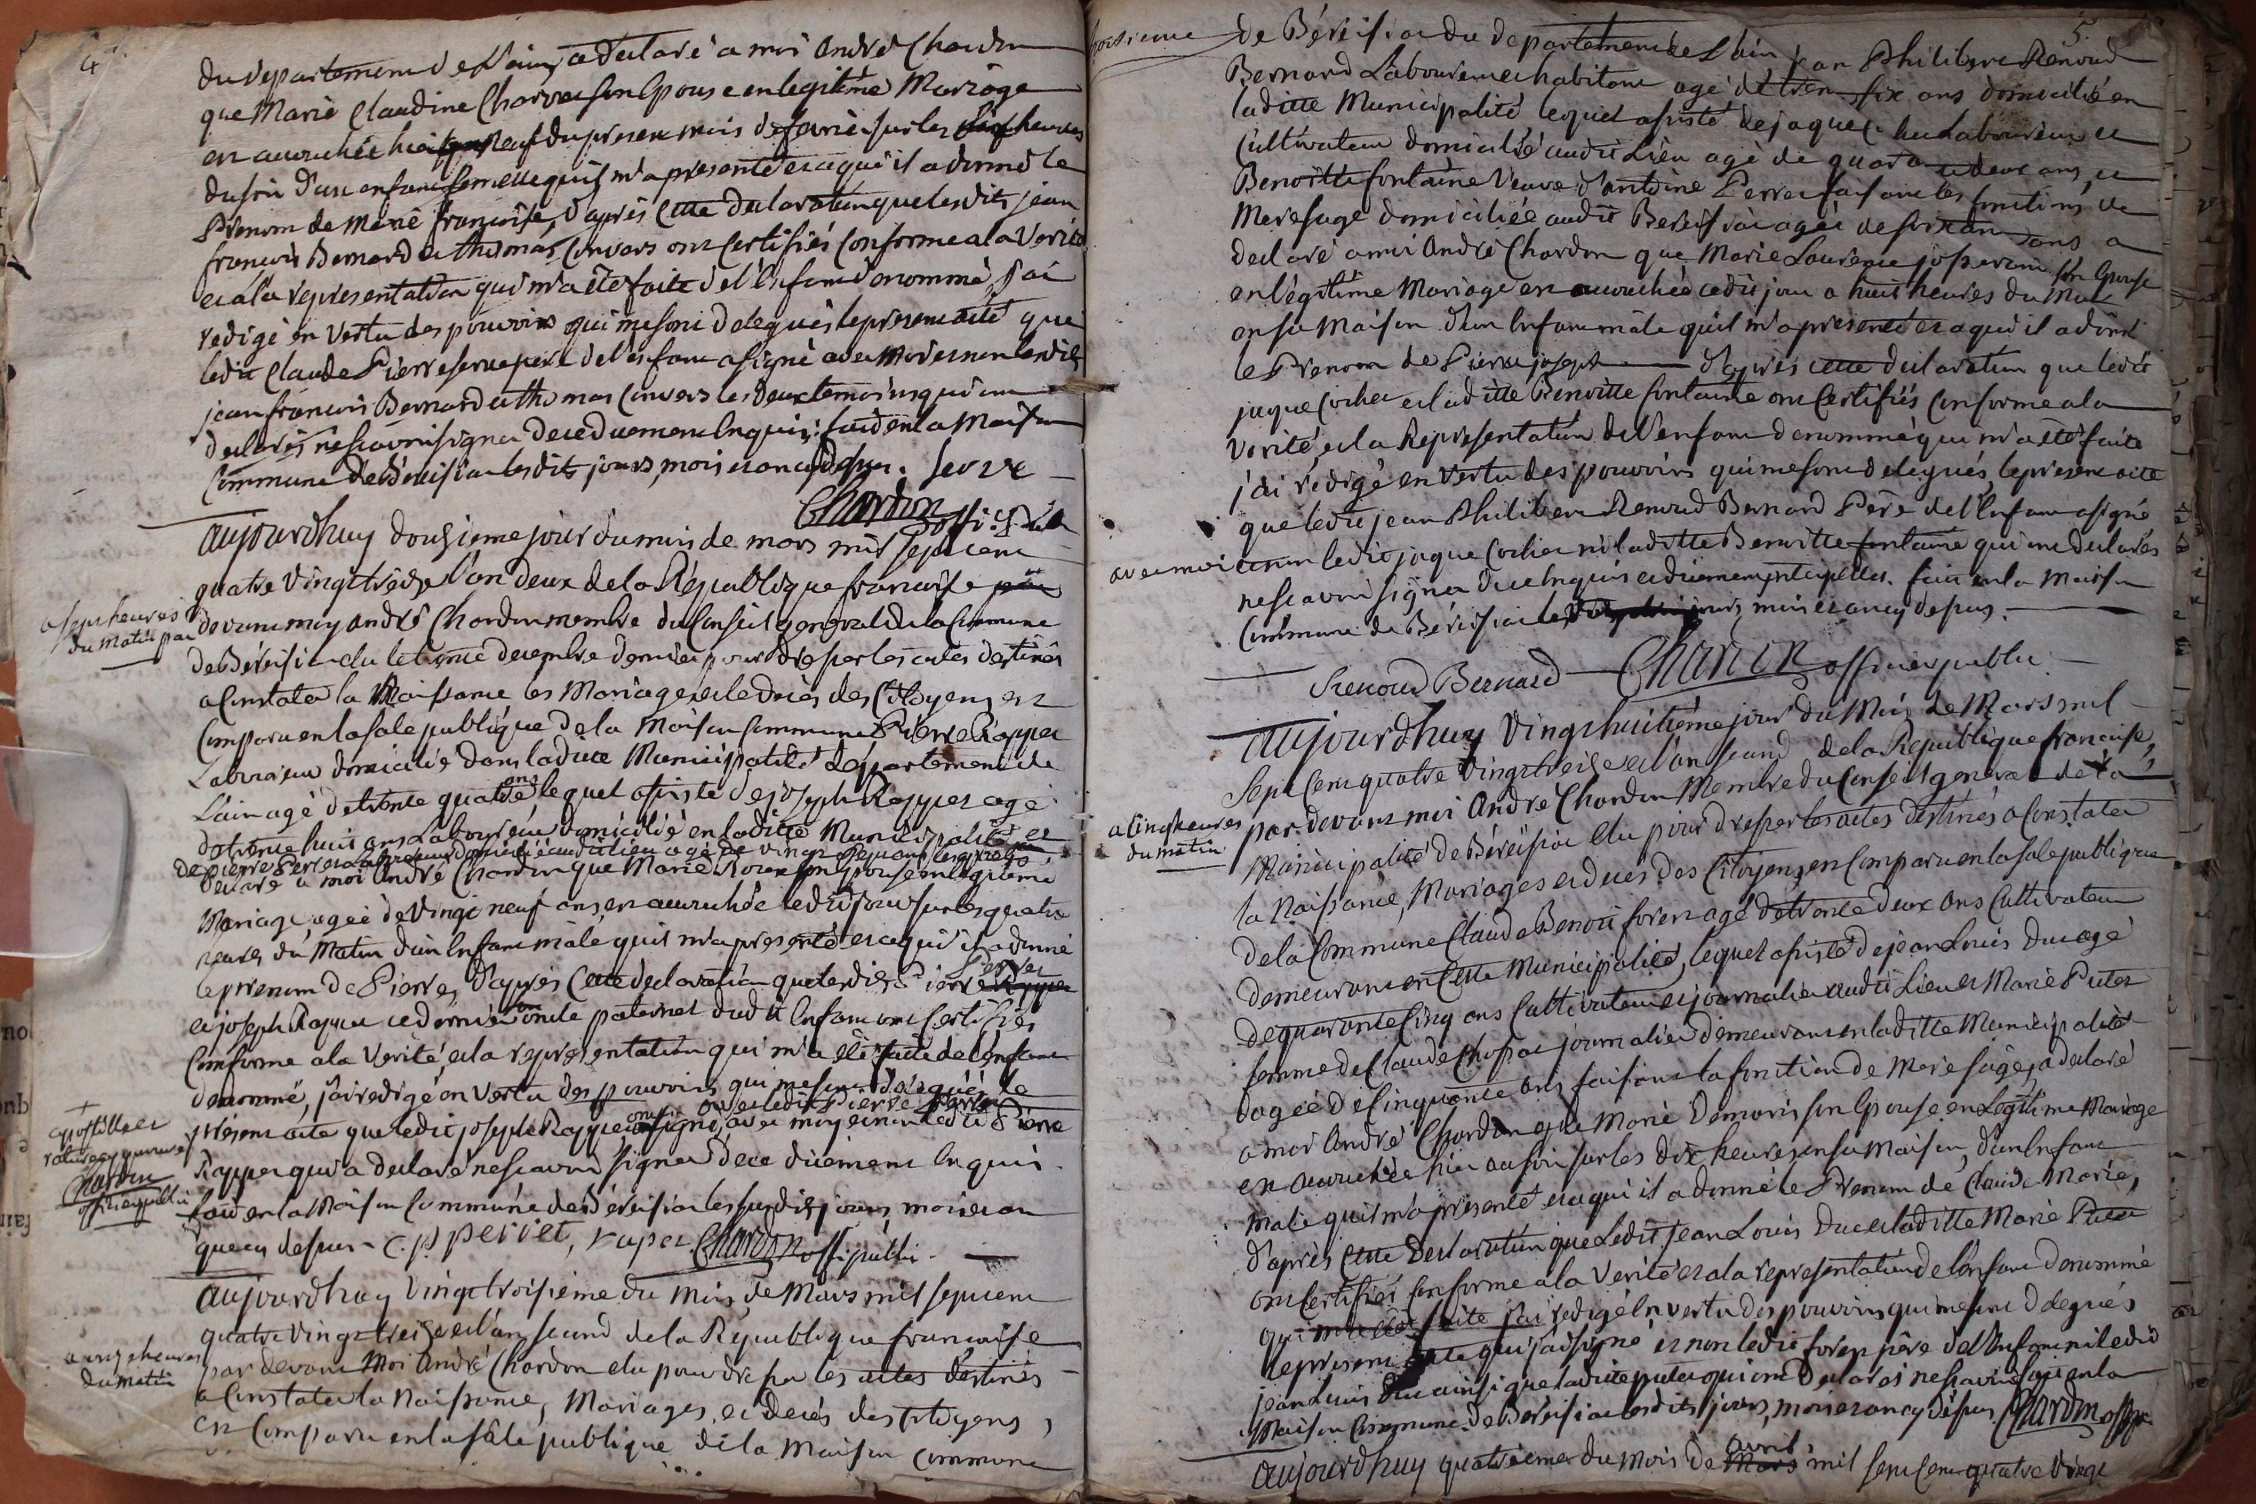 4
du departement de L'ain, a declaré a moi André Chardon
que Marie Claudine Charvet son Epouse en legitime Mariage
est accouchée hier neuf du present mois de fevrier sur les heures
du soir d'un enfant femelle qu'il m'a presenté et a qui il a donné le
Prenom de Marie françoise, d'après cette declaration que lesdits jean
francois Bernard et thomas Convers ont certifiés conforme a la verité
et a la representation qui m'a été faite de l'enfant denommé, j'ai
redigé en vertu des pouvoirs qui me sont delegués le present acte que
ledit Claude Pierre Serve pere de l'enfant a signé avec moi et non lesdits
jean francois Bernard et thomas Convers les deux temoins qui ont
declarés ne scavoir signer de ce duement enquis; fait en la Maison
Commune de Béreisia lesdits jours, mois et an cy dessus. Serve
Chardon offi. pub
aujourdhuy douzieme jour du mois de mars mil sept cent
quatre vingt treize l'an deux de la République francaise
a sept heures
du matin par
devant moy andré Chardon membre du Conseil general de la Commune
de Béreisia elu le trente decembre dernier pour dresser les actes destinés
a Constater la Naissance les Mariages et le deces des Citoyens est
Comparu en la sale publique de la Maison Commune Pierre Rappet
Laboureur domicilié dans ladite Municipalité departement de
L'ain agé de trente quatre ans lequel assisté de joseph Rappet agé
de trente huit ans Laboureur domicilié en ladite Municipalité et
de pierre Perret Laboureur domicilié audit lieu agé de vingt
declaré a moi André Chardon que Marie Roux son Epouse en legitime
Mariage, agée de vingt neuf ans, est accouchée cedit jour sur les quatre
heures du Matin d'un Enfant mâle qu'il m'a presenté et a qui il a donné
le prenom de Pierre, d'après cette declaration que lesdits Pierre Perret
et joseph Rappet ce dernier oncle paternel dudit Enfant ont certifiés
Conforme a la Verité, et la representation qui m'a été faite de l'enfant
denommé, j'ai redigé en Vertu des pouvoirs qui me sont delegués le
présent acte que ledit joseph Rappet ont signé, avec ledit Pierre Perret avec moy et non ledit Pierre
Rappet qui a declaré ne scavoir signer de ce duement Enquis.
apostille et
rature approuvées
Chardon
officier public
fait en la Maison Commune de Béreisia les susdits jours, mois et an
que cy dessus. C. p perret, rapet Chardon offi. public.
aujourdhuy vingt troisième du mois de Mars mil sept cent
quatre vingt treize et l'an second de la République francaise
a onze heures
du matin
par devant Moi André Chardon elu pour dresser les actes destinés
a Constater la Naissance, Mariages, et decés des Citoyens,
est Comparu en la sâle publique de la Maison Commune
5.
troisieme
de Béreisia du departement de L'ain jean Philibert Renoud
Bernard Laboureur et habitant agé de trente six ans domicilié en
laditte Municipalité lequel assisté de jaque Cochet Laboureur et
Cultivateur domicilié audit Lieu agé de quarante deux ans, et
Benoitte fontaine Veuve d'antoine Perret faisant les fonctions de
Mere sage domiciliée audit Bereisia agée de soixante ans a
declaré a moi André Chardon que Marie Laurence josserand son Epouse
en légitime Mariage est accouchée cedit jour a huit heures du Matin
en sa Maison d'un Enfant mâle qu'il m'a presenté et a qui il a donné
le Prenom de Pierre joseph d'après cette declaration que ledit
jaque Cochet et laditte Benoitte fontaine ont Certifiés Conforme a la
Verité, et la Representation de l'enfant denommé qui m'a été faite
j'ai rédigé en Vertu des pouvoirs qui me sont delegués, le present acte
que ledit jean Philibert Renoud Bernard Père de l'Enfant a signé
avec moi et non ledit jaque Cochet ni laditte Benoitte fontaine qui ont declarés
ne scavoir signer de ce Enquis et duement interpellés. fait en la Maison
Commune de Béreisia les jours, mois et an cy dessus.
Renoud Bernard Chardon officier public
aujourdhuy Vingt huitième jour du Mois de Mars mil
Sept Cent quatre Vingt treize et l'an second de la Republique francaise,
a cinq heures
du matin
par devant moi André Chardon Membre du Conseil general de la
Municipalité de Béreisia elu pour dresser les actes destinés a Constater
la Naissance, Mariages et deces des Citoyens, est Comparu en la sale publique
de la Commune Claude Benoit forest agé de trente deux ans Cultivateur
demeurant en Cette Municipalité, lequel assisté de jean Louis Duc agé
de quarante Cinq ans Cultivateur et journalier audit Lieu et Marie Putet
femme de Claude journalier demeurant en laditte Municipalité
agée de Cinquante ans faisant la fonction de Mere sage, a declaré
a moi André Chardon que Marie Demoris son Epouse en Legitime Mariage
est accouchée hier au soir sur les dix heures en sa Maison, d'un Enfant
male qu'il m'a presenté et a qui il a donné le Prenom de Claude Marie,
d'après Cette Declaration que ledit jean Louis Duc et laditte Marie Putet
ont Certifiés Conforme a la Verité et a la representation de l'Enfant denommé
qui m'a été faite j'ai redigé En vertu des pouvoirs qui me sont delegués
le present acte que j'ai signé et non ledit forest père de l'Enfant ni ledit
jean Louis Duc ainsi que ladite putet qui ont declarés ne scavoir fait en la
Maison Commune de Béreisia lesdits jours, mois et an cy dessus. Chardon off. p.
aujourdhuy quatrieme du mois de avril mil sept Cent quatre Vingt